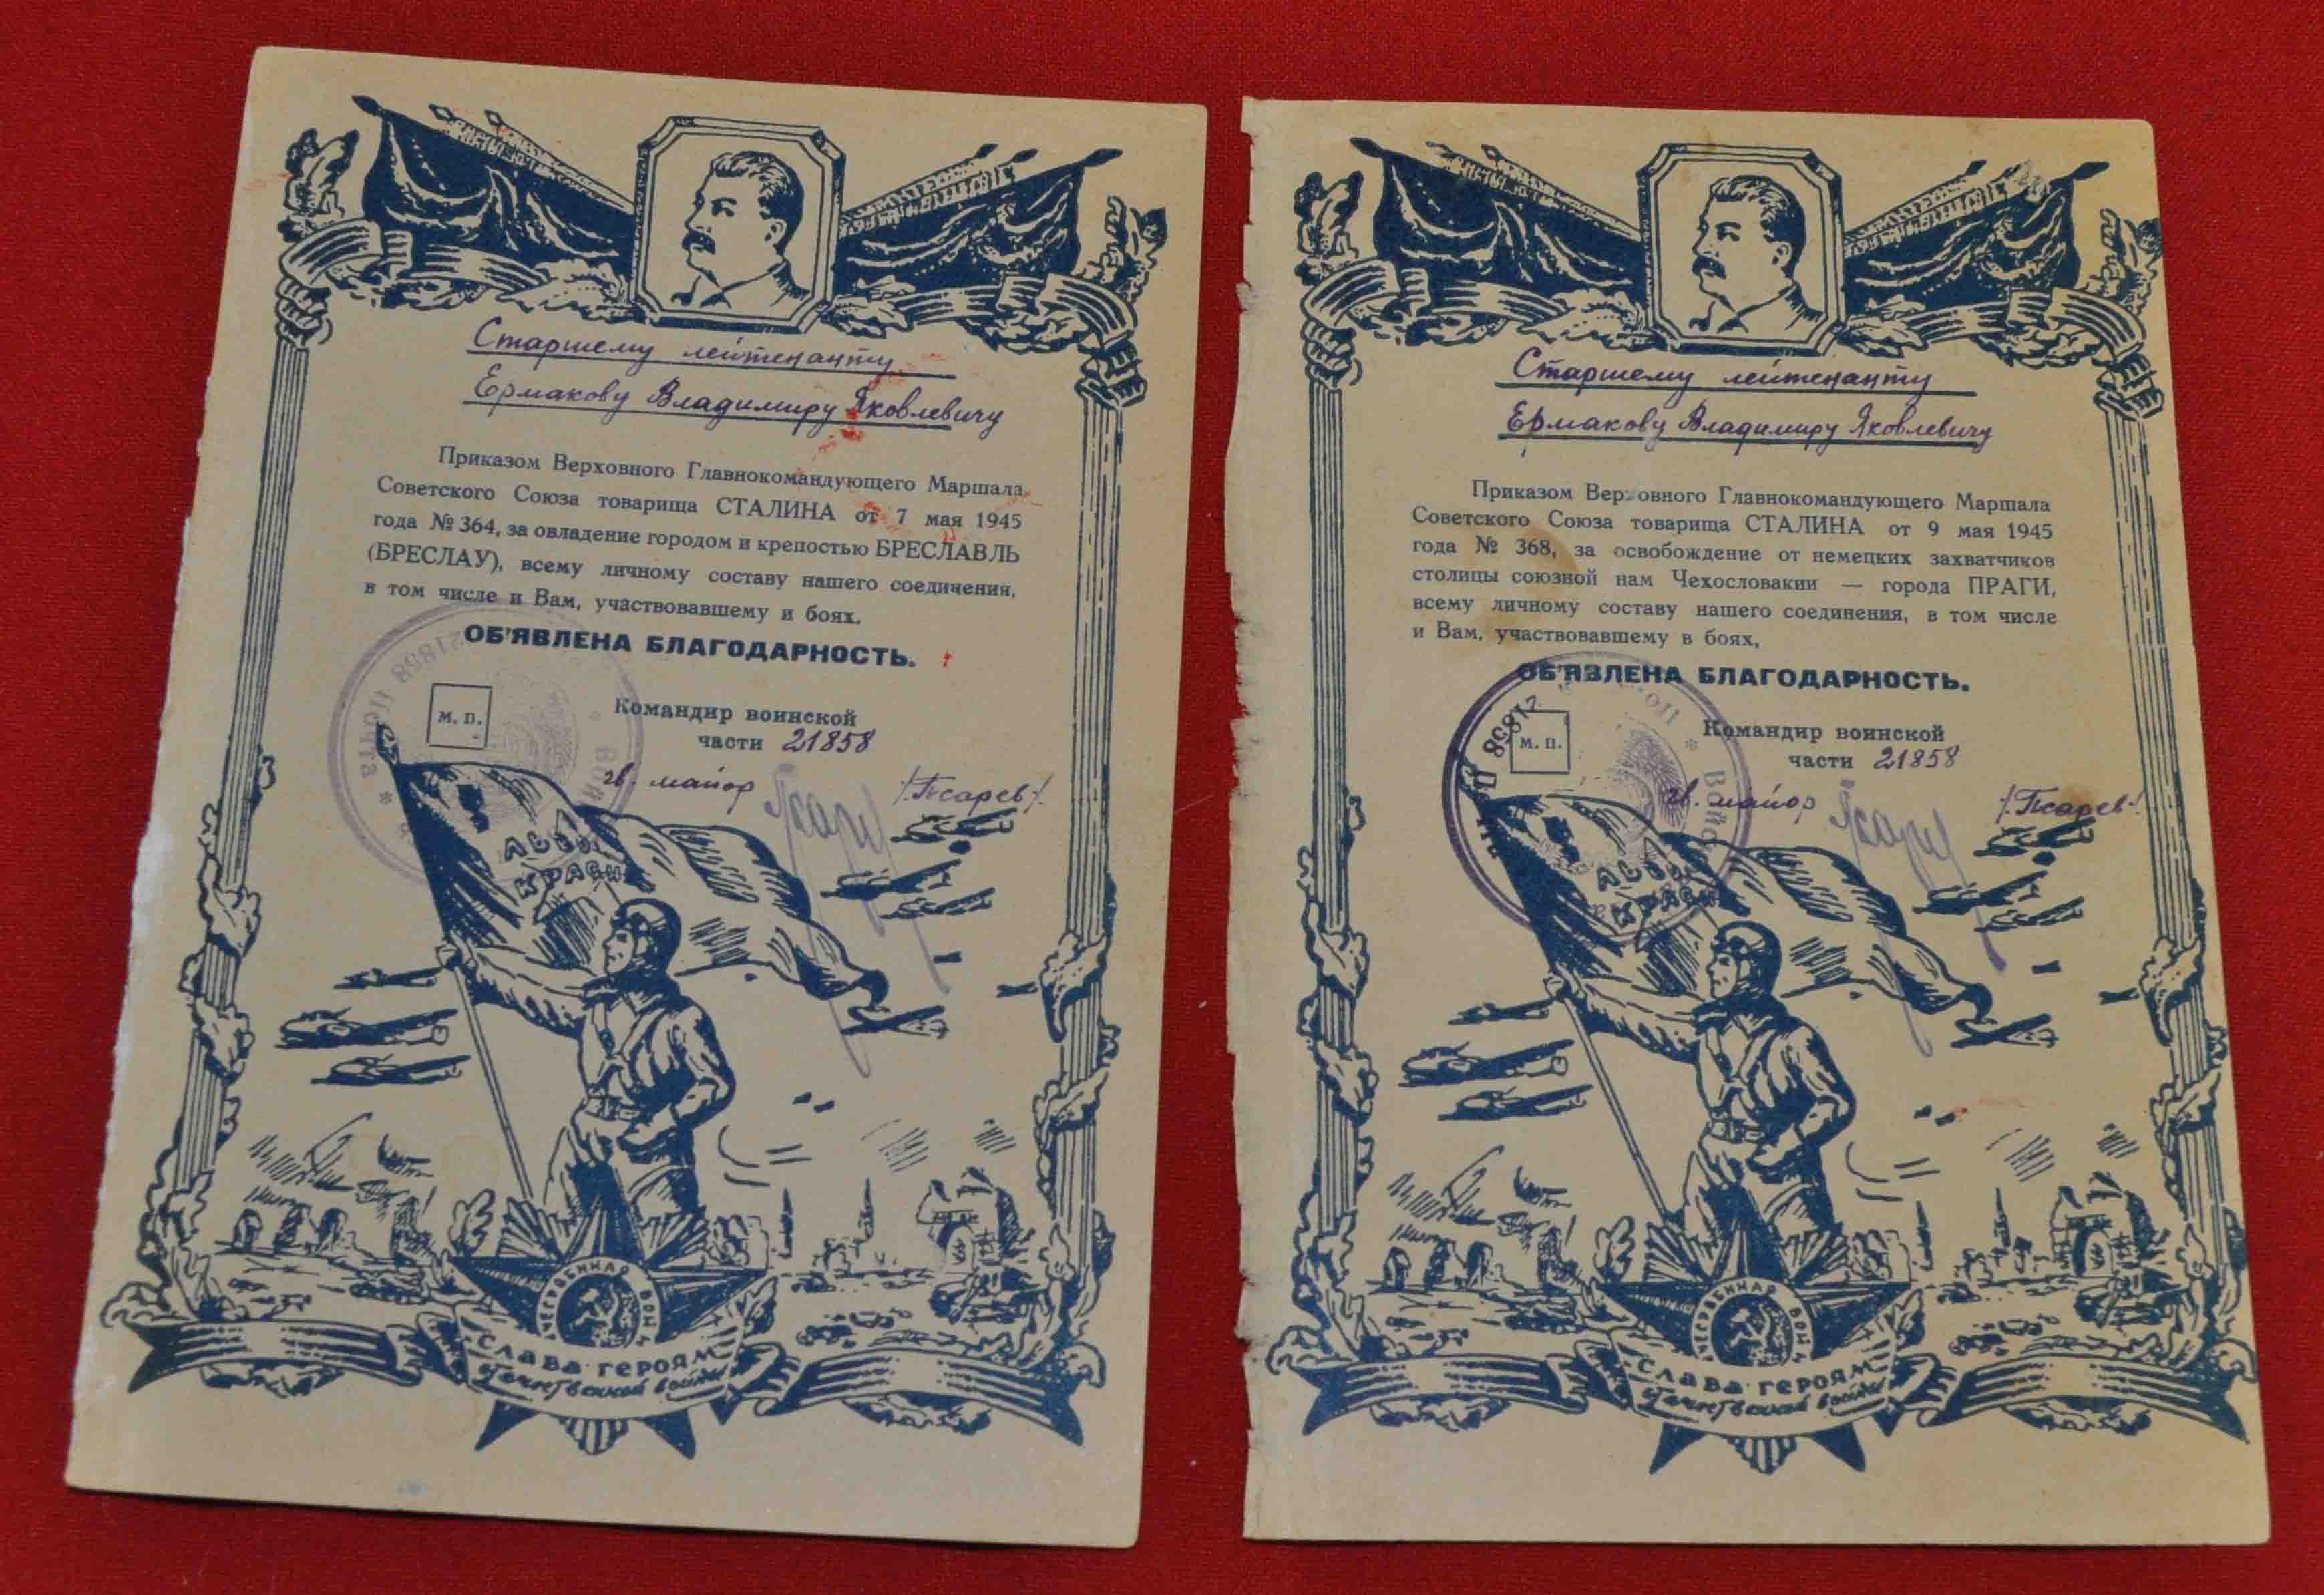 Старшему лейтенанту
Ермакову Владимиру Яковлевичу
Приказом Верховного Главнокомандующего Маршала
Советского Союза товарища СТАЛИНА от 7 мая 1945
года № 364, за овладение городом и крепостью БРЕСЛАВЛЬ
(БРЕСЛАУ), всему личному составу нашего соединения,
в том числе и Вам, участвовавшему и боях.
ОБ'ЯВЛЕНА БЛАГОДАРНОСТЬ.
М. П.
Командир воинской
части 21858
гв. майор /Писарев/
21858
СЛАВА ГЕРОЯМ
Отечественной войны
Старшему лейтенанту
Ермакову Владимиру Яковлевичу
Приказом Верховного Главнокомандующего Маршала
Советского Союза товарища СТАЛИНА от 9 мая 1945
года № 368, за освобождение от немецких захватчиков
столицы союзной нам Чехословакии — города ПРАГИ,
всему личному составу нашего соединения, в том числе
и Вам, участвовавшему в боях,
ОБ'ЯВЛЕНА БЛАГОДАРНОСТЬ.
М. П.
Командир воинской
части 21858
гв. майор /Писарев/
21858
СЛАВА ГЕРОЯМ
Отечественной войны